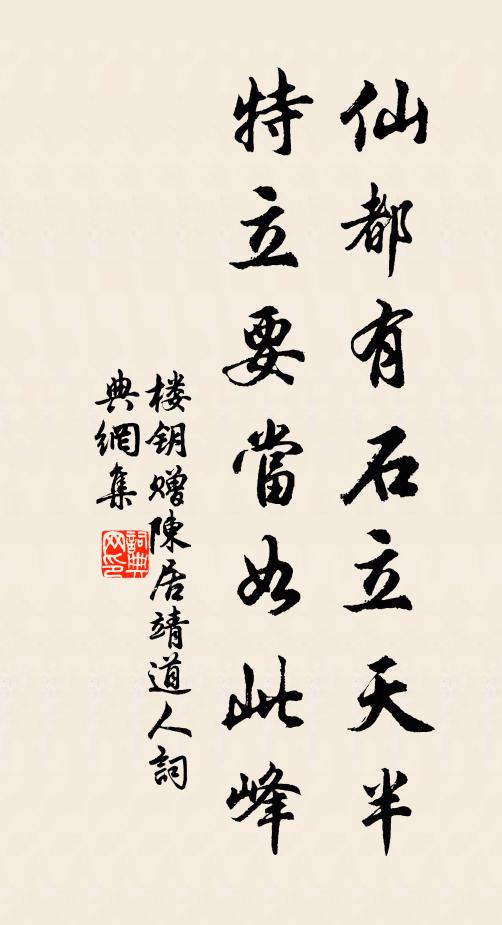 仙都有石立天半
特立要當如此峰
楼钥赠陳居靖道人詞
典網集
詞典
网印